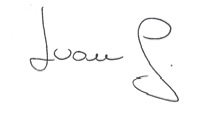 Juan G.